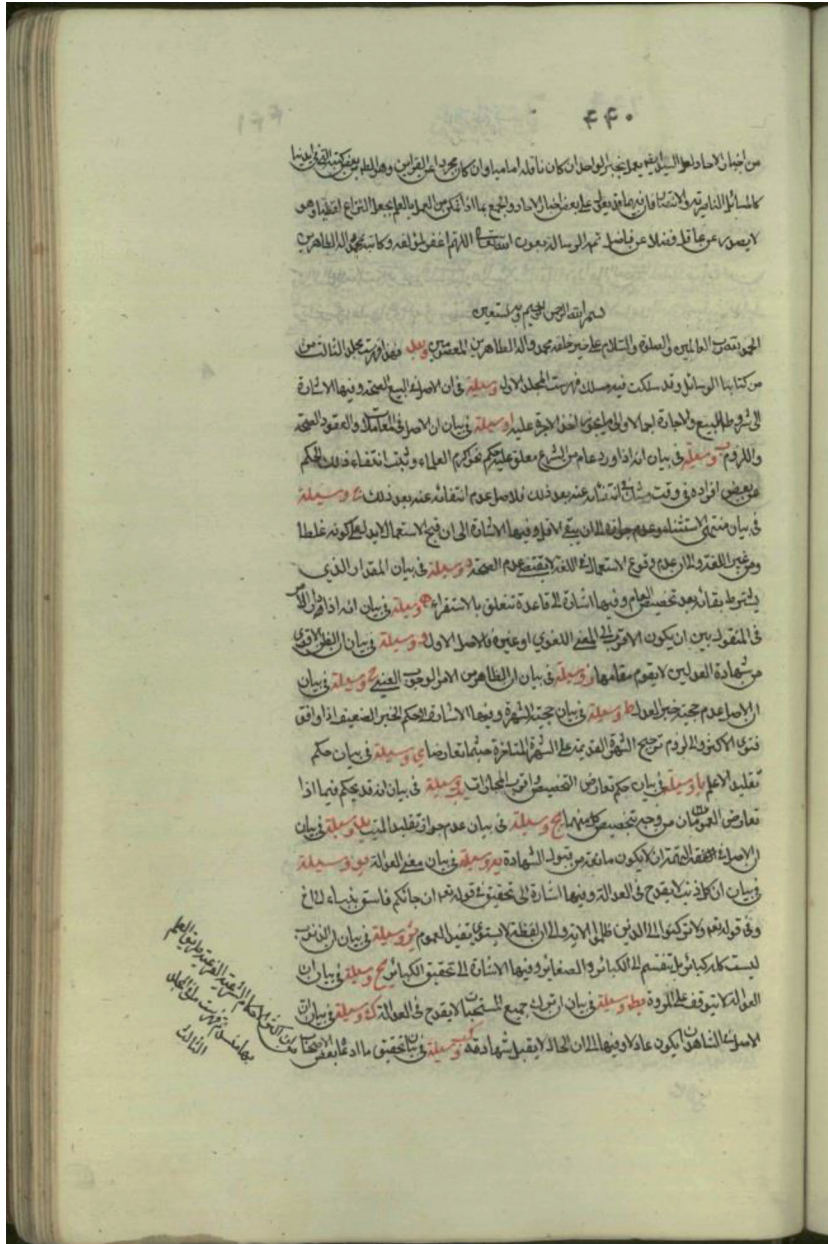 ۴۴۰
من اخبار الاحاد لعل السيد ايضا يعمل بخبر الواحد ان كان ناقله اماميا وان كان مجردا عن القراين وهو الظاهر من بعض كتبه
كالمسائل الناصرية والانتصار فان فيهما على بعض اخبار الاحاد والجمع بما اذا تمكن من العمل بالعلم يجعل النزاع لفظيا وهو
لا يصدر عن عاقل فضلا عن فاضل تمت الرسالة بعون الله تعالى اللهم اغفر لمؤلفه وكاتبه بمحمد واله الطاهرين
بسم الله الرحمن الرحيم وبه نستعين
الحمد لله رب العالمين والصلوة والسلام على خير خلقه محمد واله الطاهرين المعصومين وبعد فهذا فهرست مجلد الثالث من
من كتابنا الوسائل وقد سلكت فيه مسلك فهرست المجلد الاول وسيلة في ان الاصل في البيع الصحة وفيها الاشارة
الى شروط البيع والاجارة اخذ الاجرة عليه ا وسيلة في بيان ان الاصل في المعاملات والعقود الصحة
واللزوم ب وسيلة في بيان انه اذا ورد عام من الشرع معلق عليه حكم نحو اكرم العلماء وثبت انتفاء ذلك الحكم
عن بعض افراده في وقت وشك في انتفائه عنه بعد ذلك فالاصل عدم انتفائه عنه بعد ذلك ج وسيلة
في بيان منتهى الاستثناء وعدم جوازه الى ان يبقى الاقل وفيها الاشارة الى ان قبح الاستعمال لا يدل على كونه غلطا
ومن غير اللغة والى ان عدم وقوع الاستعمال في اللغة لا يقتضي عدم الصحة د وسيلة في بيان المقدار الذي
يشترط بقائه بعد تخصيص العام وفيها اشارة الى قاعدة تتعلق بالاستقراء ه وسيلة في بيان انه اذا دار الامر
في المنقول بين ان يكون الاقرب الى المعنى اللغوي او غيره فالاصل الاول و وسيلة في بيان ان الظن الاقوى
من شهادة العدلين لا يقوم مقامها ز وسيلة في بيان ان الظاهر من الامر الوجوب العيني ح وسيلة في بيان
ان الاصل عدم حجية خبر العدل ط وسيلة في بيان حجية الشهرة وفيها الاشارة الى حكم الخبر الضعيف اذا وافق
فتوى الاكثر والى لزوم ترجيح الشهرة القديمة على الشهرة المتاخرة حيثما تعارضا ي وسيلة في بيان حكم
تقليد الاعلم يا وسيلة في بيان حكم تعارض التخصيص واقرب المجازات يب وسيلة في بيان انه قد يحكم فيما اذا
تعارض العمومان من وجه بتخصيص كل منهما يج وسيلة في بيان عدم جواز تقليد الميت يد وسيلة في بيان
ان الاصل في ان لا يكون مانعة من قبول الشهادة يه وسيلة في بيان معنى العدالة يو وسيلة
في بيان ان كل ذنب لا يقدح في العدالة وفيها اشارة الى تحقيق في قوله تعالى ان جائكم فاسق بنباء الخ
وفي قوله تعالى ولا تركنوا الى الذين ظلموا الاية والى ان لفظة لا يستوي يفيد العموم يز وسيلة في بيان ان الذنوب
ليست كلها كبائر بل تنقسم الى الكبائر والصغاير وفيها الاشارة الى تحقيق الكبائر يح وسيلة في بيان ان
العدالة لا تتوقف على المروة يط وسيلة في بيان ان ترك جميع المستحبات لا يقدح في العدالة ك وسيلة في بيان ان
الاصل في الشاهد ان يكون عادلا وفيها الى ان لا يقبل شهادته كا وسيلة في بيان تحقيق ما ادعاه بعض الاصحاب
من ان اكثر الاحكام الشرعية الفرعية طريق العلم
بها منسد تم فهرست المجلد
الثالث